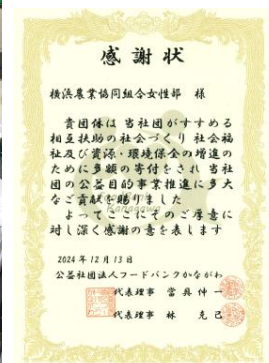 感謝状
横浜農業協同組合女性部 様
貴団体は当社団がすすめる
相互扶助の社会づくり 社会福
祉及び資源・環境保全の増進の
ために多額の寄付をされ 当社
団の公益目的事業推進に多大
なご貢献を賜りました
よってここにそのご厚意に
対し深く感謝の意を表します
2024年12月13日
公益社団法人フードバンクかながわ
代表理事 當具伸一
代表理事 林 克己